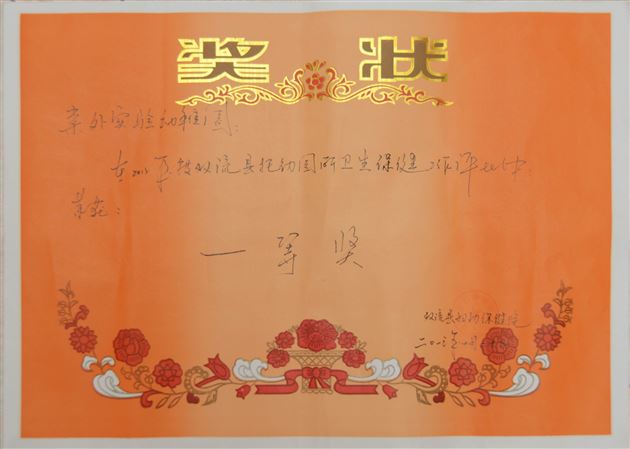 奖 状
棠外实验幼稚园:
在 双流县托幼园所卫生保健工作评比中,
荣获:
一等奖
双流县妇幼保健院
二〇一三年